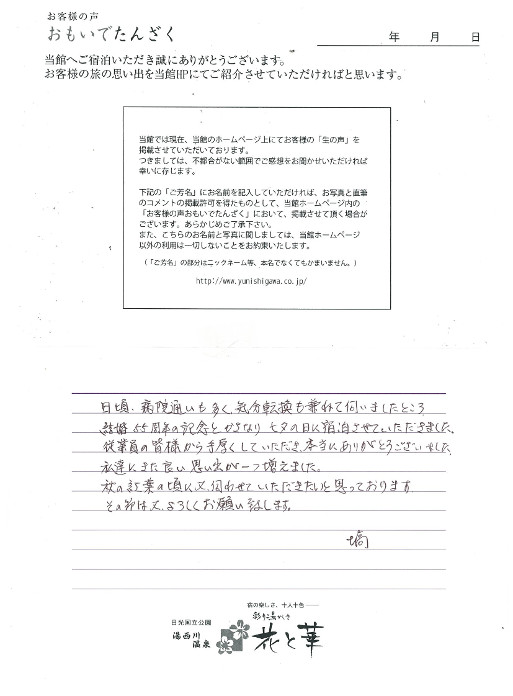 お客様の声
おもいでたんざく
年 月 日
当館へご宿泊いただき誠にありがとうございます。
お客様の旅の思い出を当館HPにてご紹介させていただければと思います。
当館では現在、当館のホームページ上にてお客様の「生の声」を
掲載させていただいております。
つきましては、不都合がない範囲でご感想をお聞かせいただければ
幸いに存じます。
下記の「ご芳名」にお名前を記入していただければ、お写真と直筆
のコメントの掲載許可を得たものとして、当館ホームページ内の
「お客様の声おもいでたんざく」において、掲載させて頂く場合が
ございます。あらかじめご了承下さい。
また、こちらのお名前と写真に関しましては、当館ホームページ
以外の利用は一切しないことをお約束いたします。
(「ご芳名」の部分はニックネーム等、本名でなくてもかまいません。)
http://www.yunishigawa.co.jp/
日頃、病院通いも多く、気分転換も兼ねて伺いましたところ
結婚55周年の記念とかさなり七夕の日に宿泊させていただきました、
従業員の皆様から手厚くしていただき、本当にありがとうございました、
永遠にまた良い思い出が一つ増えました。
秋の紅葉の頃に又、伺わせていただきたいと思っております
その節は又、よろしくお願い致します。
塙
宿の楽しさ、十人十色
日光国立公園
湯西川
温泉
彩り湯かしき
花と華